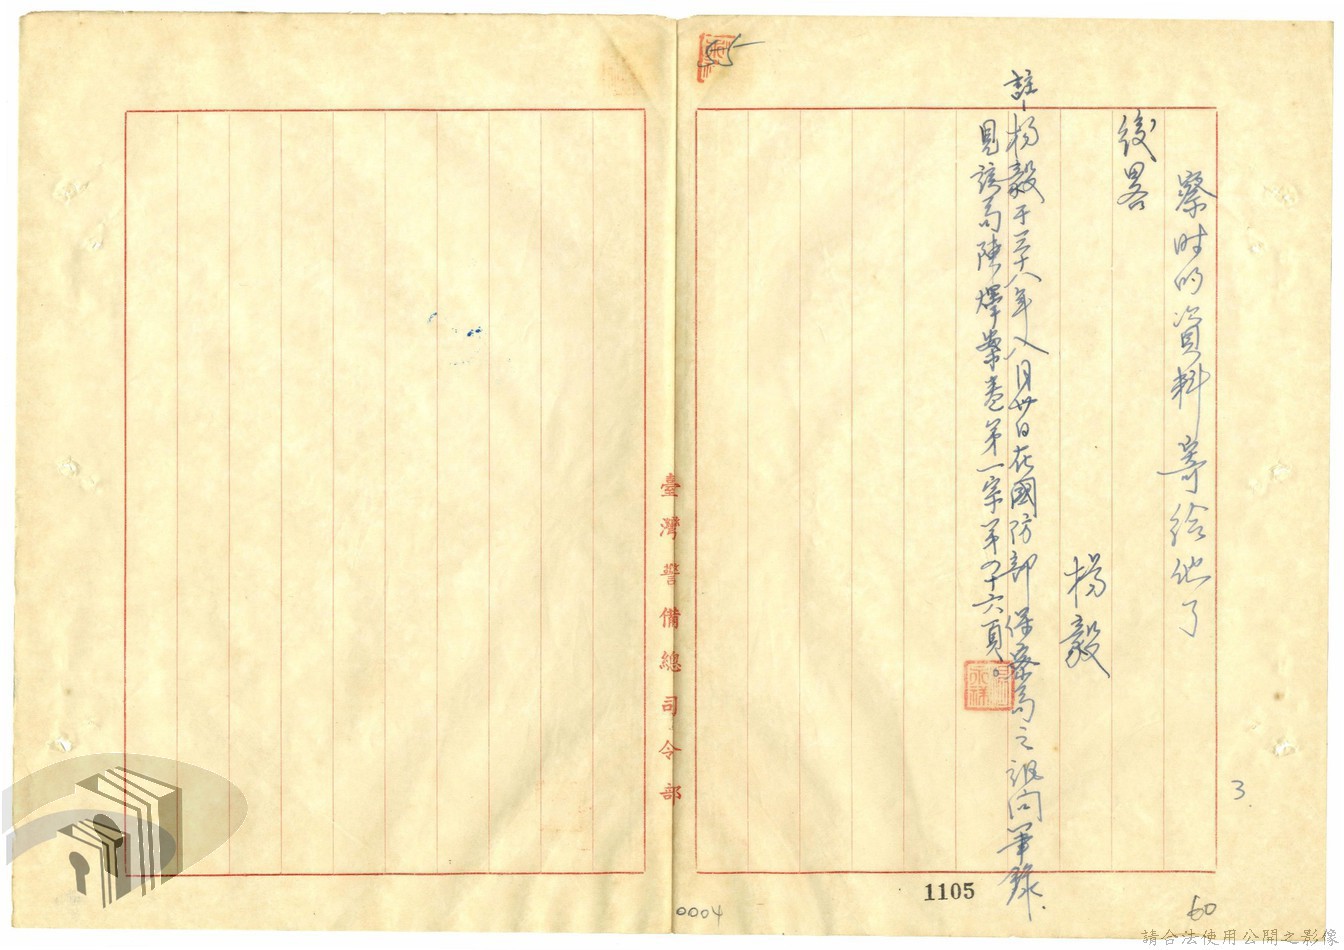 察时的資料寄給他了
後畧
楊毅
註-楊毅于三十八年八月廿日在國防部保密局之訊问筆錄.
見該局陳燁案卷第一宗第四十六頁。
臺灣警備總司令部
3
1105
0004
60
請合法使用公開之影像